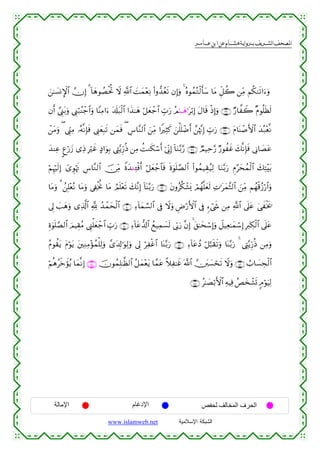 المصحف الشريف برواية هشام عن ابن عامر
وَءَاتَىٰكُم مِّن كُلِّ مَا سَأَلْتُمُوهُ ۚ وَإِن تَعُدُّوا۟ نِعْمَتَ ٱللَّهِ لَا تُحْصُوهَآ ۗ إِنَّ ٱلْإِنسَٰنَ
لَظَلُومٌ كَفَّارٌ وَإِذْ قَالَ إِبْرَٰهَٰمُ رَبِّ ٱجْعَلْ هَٰذَا ٱلْبَلَدَ ءَامِنًا وَٱجْنُبْنِى وَبَنِىَّ أَن
نَّعْبُدَ ٱلْأَصْنَامَ رَبِّ إِنَّهُنَّ أَضْلَلْنَ كَثِيرًا مِّنَ ٱلنَّاسِ ۖ فَمَن تَبِعَنِى فَإِنَّهُۥ مِنِّى ۖ وَمَنْ
عَصَانِى فَإِنَّكَ غَفُورٌ رَّحِيمٌ رَّبَّنَآ إِنِّىٓ أَسْكَنتُ مِن ذُرِّيَّتِى بِوَادٍ غَيْرِ ذِى زَرْعٍ عِندَ
بَيْتِكَ ٱلْمُحَرَّمِ رَبَّنَا لِيُقِيمُوا۟ ٱلصَّلَوٰةَ فَٱجْعَلْ أَفْـِٔيدَةً مِّنَ ٱلنَّاسِ تَهْوِىٓ إِلَيْهِمْ
وَٱرْزُقْهُم مِّنَ ٱلثَّمَرَٰتِ لَعَلَّهُمْ يَشْكُرُونَ رَبَّنَآ إِنَّكَ تَعْلَمُ مَا نُخْفِى وَمَا نُعْلِنُ ۗ وَمَا
يَخْفَىٰ عَلَى ٱللَّهِ مِن شَىْءٍ فِى ٱلْأَرْضِ وَلَا فِى ٱلسَّمَآءِ ٱلْحَمْدُ لِلَّهِ ٱلَّذِى وَهَبَ لِى
عَلَى ٱلْكِبَرِ إِسْمَٰعِيلَ وَإِسْحَٰقَ ۚ إِنَّ رَبِّى لَسَمِيعُ ٱلدُّعَآءِ رَبِّ ٱجْعَلْنِى مُقِيمَ ٱلصَّلَوٰةِ
وَمِن ذُرِّيَّتِى ۚ رَبَّنَا وَتَقَبَّلْ دُعَآءِ رَبَّنَا ٱغْفِرْ لِى وَلِوَٰلِدَىَّ وَلِلْمُؤْمِنِينَ يَوْمَ يَقُومُ
ٱلْحِسَابُ وَلَا تَحْسَبَنَّ ٱللَّهَ غَٰفِلًا عَمَّا يَعْمَلُ ٱلظَّٰلِمُونَ ۚ إِنَّمَا يُؤَخِّرُهُمْ
لِيَوْمٍ تَشْخَصُ فِيهِ ٱلْأَبْصَٰرُ
الحرف المخالف لحفص الإدغام الإمالة
www.islamweb.net الشبكة الإسلامية